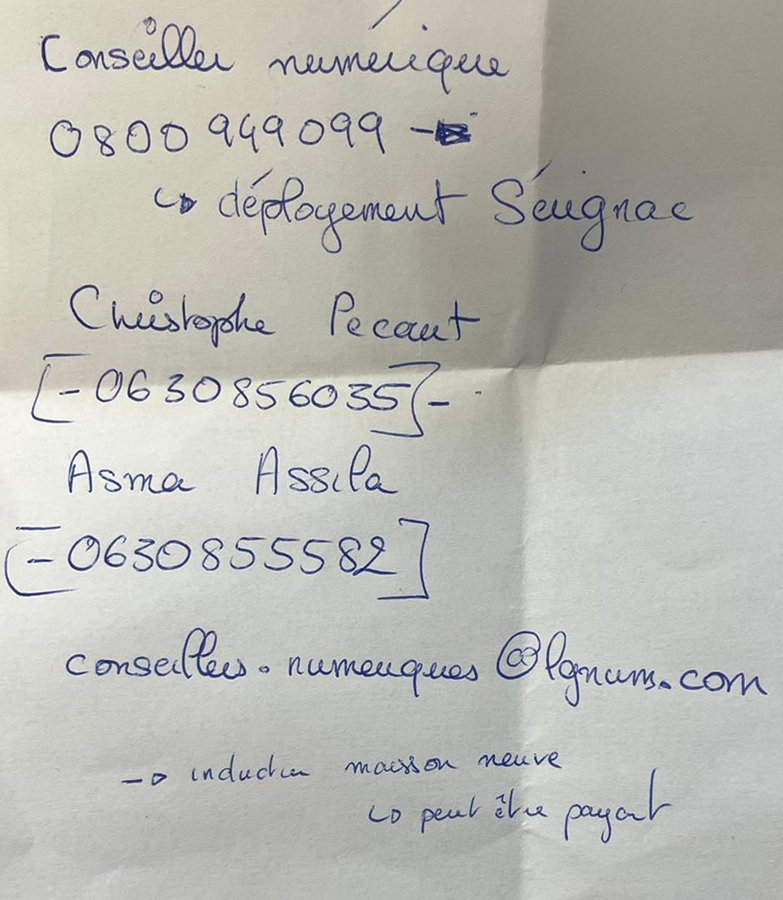 Conseiller numérique
0800 949 099 -
↳ déployement Sérignac
Christophe Pecaut
[- 06 30 85 60 35] -
Asma Assila
[- 0630855582]
conseillers.numeriques@lgnum.com
-> maison neuve
↳ peut être payant